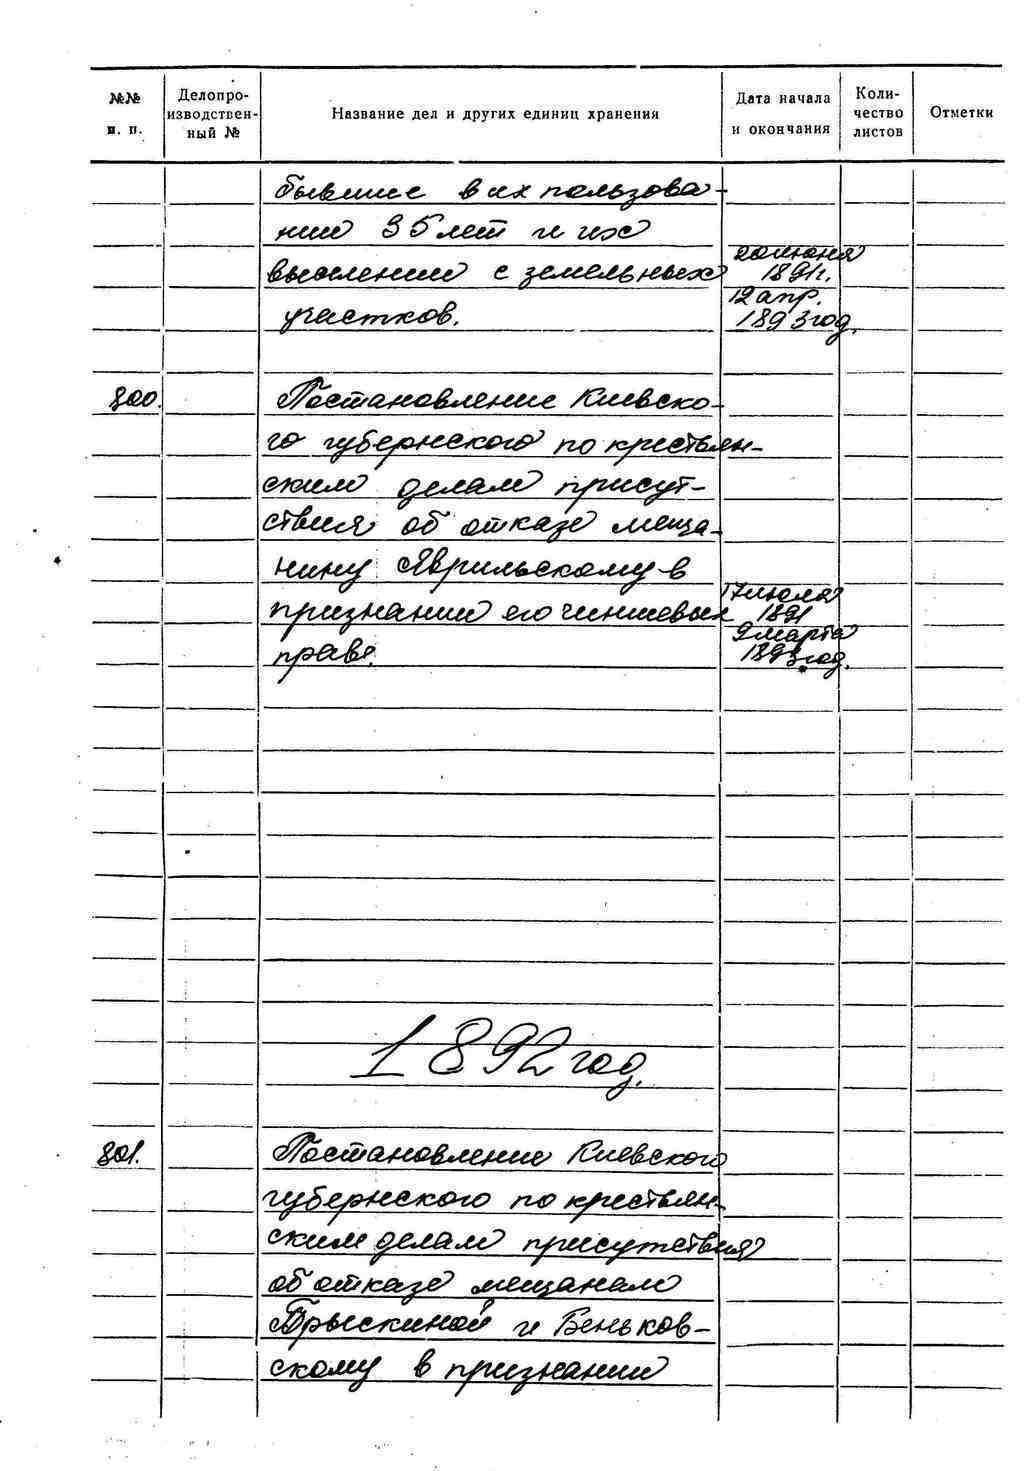 №№ п. п.
Делопро-
изводствен-
ный №
Название дел и других единиц хранения
Дата начала
и окончания
Коли-
чество
листов
Отметки
бывшие в их пользова-
нии 35 лет и их
выселении с земельных
участков.
20 июня
1891г.
12 апр.
1893 год.
800.
Постановление Киевско-
го губернского по крестьян-
ским делам присут-
ствия об отказе меща-
нину Яврильскому в
признании его чиншевых
прав.
17 июля
1891
9 марта
1893 год.
1892 год.
801.
Постановление Киевского
губернского по крестьян-
ским делам присутствия
об отказе мещанам
и Беньков-
скому в признании